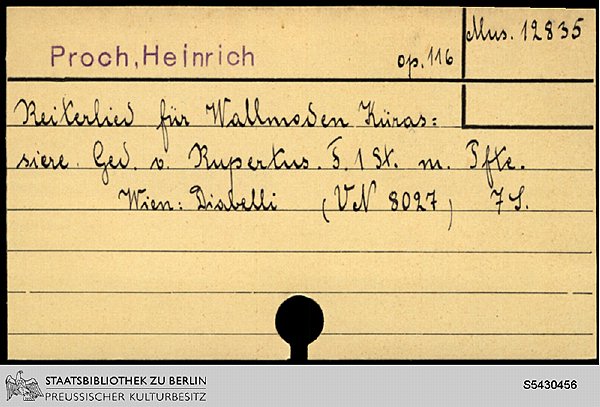 Mus. 12835
Proch, Heinrich op. 116
Reiterlied für Wallmoden Küras=
siere. Ged. v. Rupertus. F. 1 St. m. Pfte.
Wien: Diabelli (VN 8027) 7 S.
STAATSBIBLIOTHEK ZU BERLIN
PREUSSISCHER KULTURBESITZ
S5430456